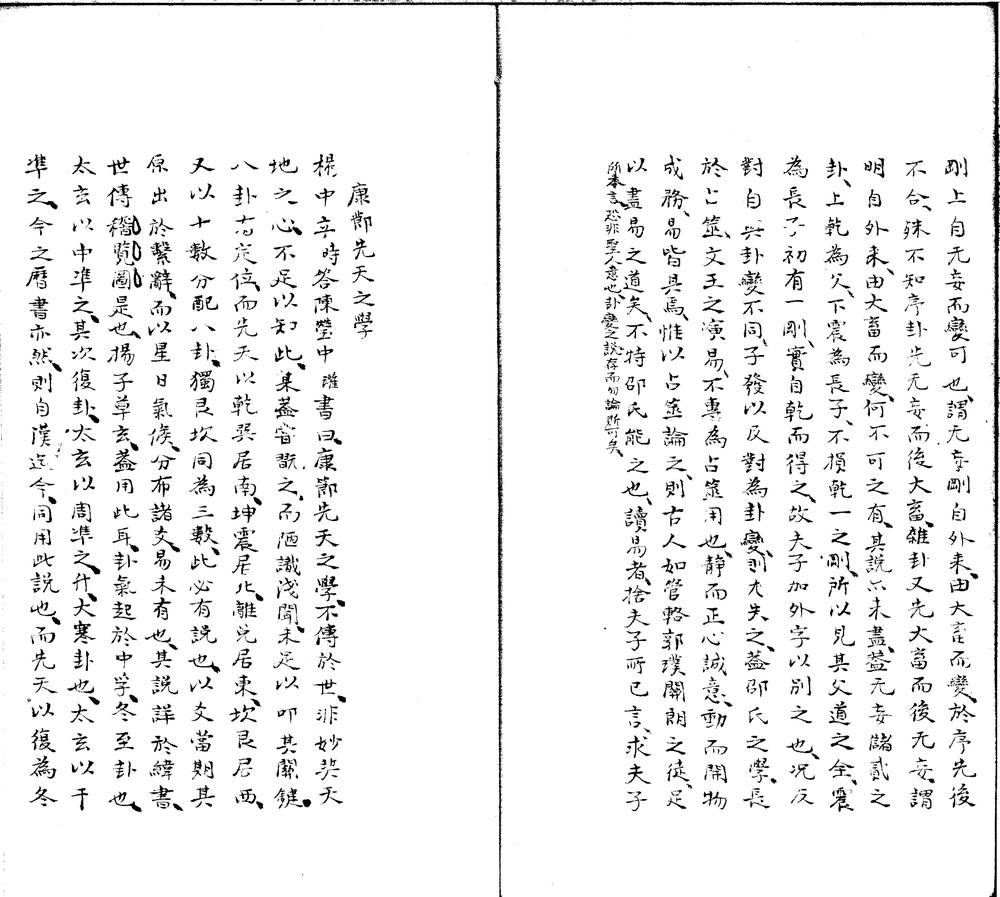 剛上自无妄而變可也謂无妄剛自外来由大畜而變於序先後
不合殊不知序卦先无妄而後大畜雜卦又先大畜而後无妄謂
明自外来由大畜而變何不可之有其説亦未盡葢无妄儲貳之
卦上乾為父下震為長子不損乾一之剛所以見其父道之全震
為長子初有一剛實自乾而得之故夫子加外字以别之也况反
對自與卦變不同子發以反對為卦變則尤失之葢邵氏之學長
於占筮文王之演易不專為占筮用也静而正心誠意動而開物
成務易皆具焉惟以占筮論之則古人如管輅郭璞關朗之徒足
以盡易之道矣不特邵氏能之也讀易者捨夫子所已言求夫子
所本言恐非聖人意也卦變之説存而勿論斯可矣
康節先天之學
楊中立時答陳瑩中瓘書曰康節先天之學不傳於世非妙契天
地之心不足以知此某葢嘗翫之而陋識淺聞未足以叩其關鍵
八卦有定位而先天以乾巽居南坤震居北離兌居東坎艮居西
又以十數分配八卦獨艮坎同為三數此必有説也以爻當期其
原出於繫辭而以星日氣候分布諸爻易未有也其説詳於緯書
世傳稽覽圖是也揚子草玄葢用此耳卦氣起於中孚冬至卦也
太玄以中凖之其次復卦太玄以周凖之升大寒卦也太玄以干
凖之今之暦書亦然則自漢迄今同用此説也而先天以復為冬